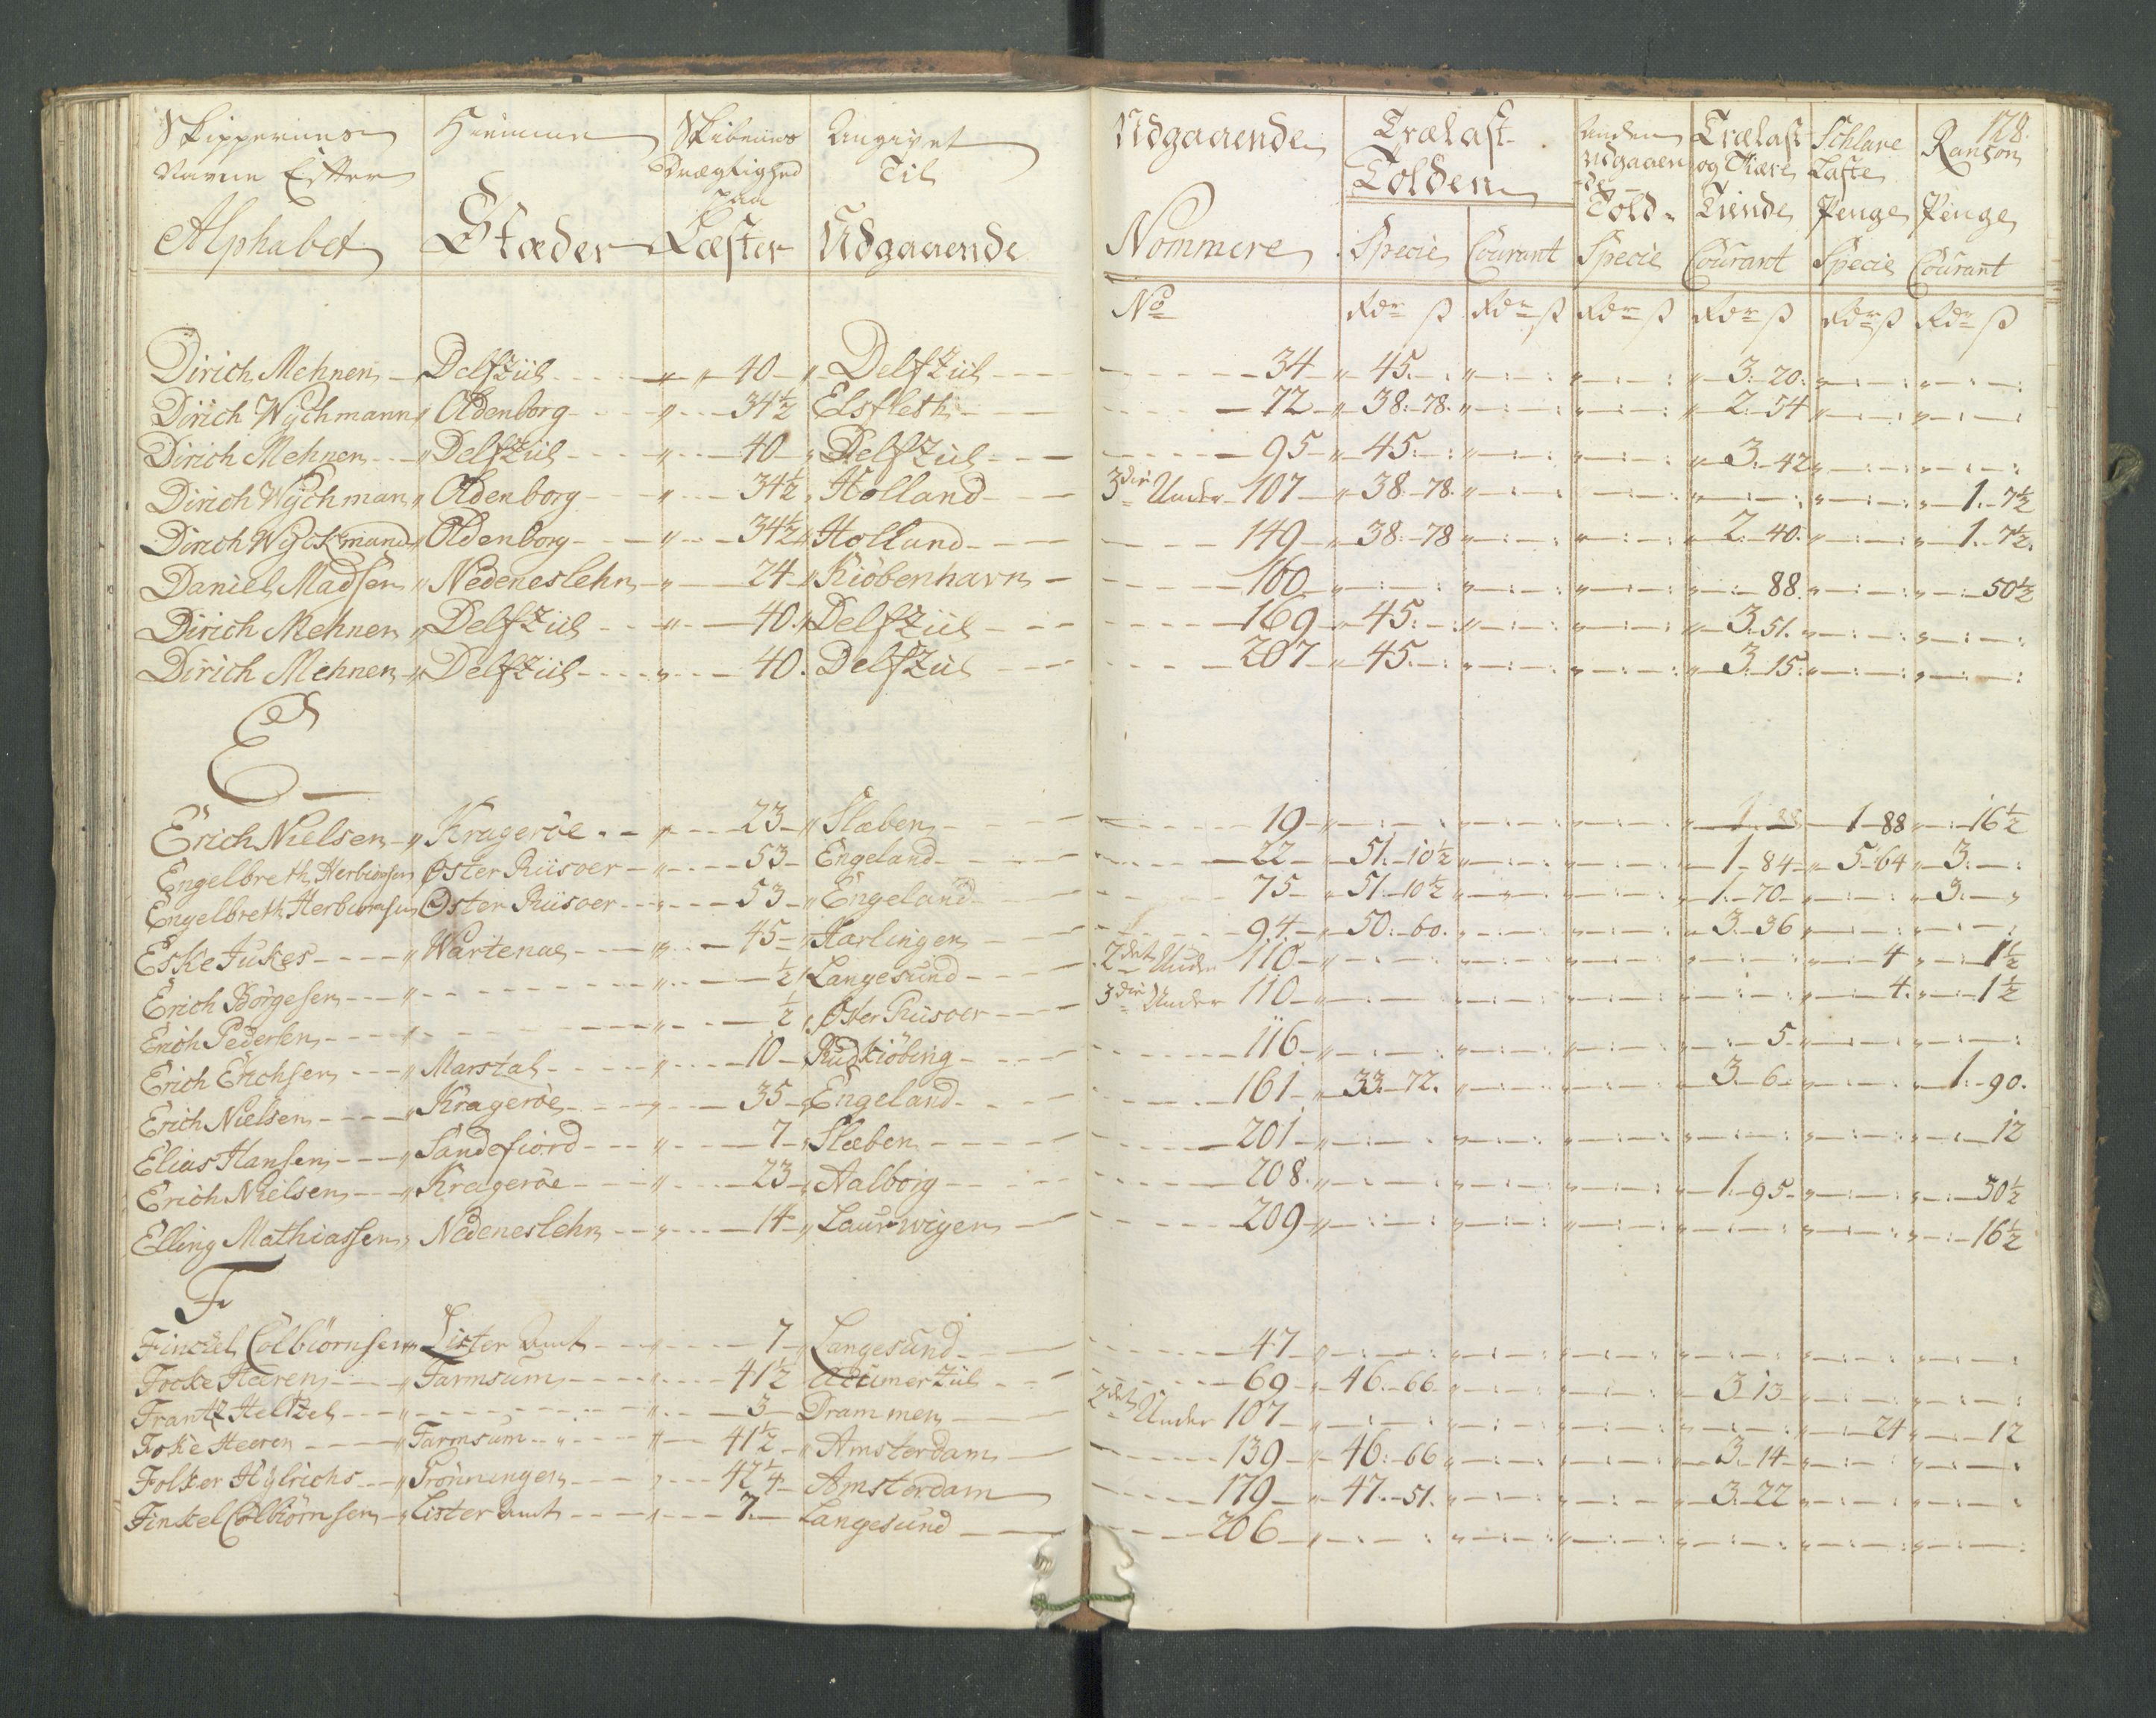 128.
Skippernes Navne Efter Alphabet | Hiemme Stæder | Skibenes Drægtighed paa Læster | Angivet Til Udgaaende | Udgaaende Nommere | Trælast Tolden Specie | Courant | Anden Udgaaende Told Specie | Trælast og Tiære Tiende Courant | Schlave Laste Penge Specie | Ranson Penge Courant
No | Rdr ß | Rdr ß | Rdr ß | Rdr ß | Rdr ß | Rdr ß
Dirich Mehnen | Delfziil | 40 | Delfziil | 34 | 45 | 3. 20.
Dirich Wychmann | Oldenborg | 34½ | Elsfleth | 72 | 38. 78. | 2. 54
Dirich Mehnen | Delfziil | 40 | Delfziil | 95 | 45 | 3. 42
Dirich Wychman | Oldenborg | 34½ | Holland | 3die Under 107 | 38. 78. | 1. 7½
Dirich Wyckmand | Oldenborg | 34½ | Holland | 149 | 38. 78 | 2. 40. | 1. 7½.
Daniel Madsen | Nedeneslehn | 24 | Kiöbenhavn | 160 | 88. | 50½
Dirich Mehnen | Delfziil | 40. | Delfziil | 169 | 45. | 3. 51.
Dirich Mehnen | Delfziil | 40. | Delfziil | 207 | 45. | 3. 15.
E
Erich Nielsen | Krageröe | 23 | Slæben | 19 | 1. 88 | 1 88 | 16½
Engelbreth Herbiörnsen | Øster Riisoer | 53 | Engeland | 22 | 51. 10½ | 1 84 | 5 64 | 3.
Engelbreth Herbiörnsen | Øster Riisoer | 53 | Engeland | 75 | 51. 10½ | 1. 70 | 3.
Eske Jukes | Wartenae | 45 | Harlingen | 94 | 50. 60. | 3. 36
Erich Börgesen | ½ | Langesund | 2det Under 110 | 4 | 1½
Erich Pedersen | ½ | Øster Riisoer | 3die Under 110 | 4. | 1½
Erich Erichsen | Marstal | 10 | Rudkiöbing | 116 | 5
Erich Nielsen | Krageröe | 35 | Engeland | 161 | 33. 72. | 3. 6 | 1. 90.
Elias Hansen | Sandefiord | 7 | Slæben | 201 | 12
Erich Nielsen | Krageröe | 23 | Aalborg | 208. | 1. 95 | 30½
Elling Mathiassen | Nedeneslehn | 14 | Laurwigen | 209 | 16½
F
Finckel Colbiörnsen | Lister Amt | 7 | Langesund | 47
Focke Heeren | Farmsum | 41½ | 69 | 46. 66 | 3 13
Frantz Heltzel | 3 | Drammen | 2det Under 107 | 24 | 12
Foke Heeren | Farmsum | 41½ | Amsterdam | 139 | 46. 66 | 3. 14
Folker Hylrichs | Grönningen | 42¼ | Amsterdam | 179 | 47. 51. | 3. 22
Finkel Colbiörnsen | Lister Amt | 7. | Langesund | 206